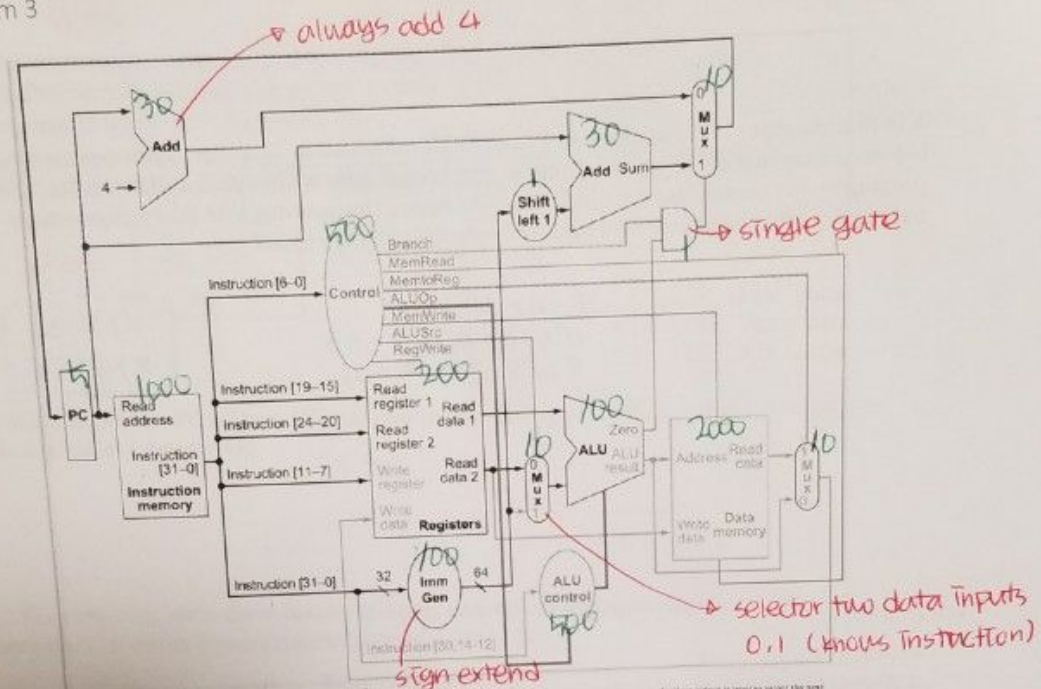 m 3
always add 4
30
Add
4
30
Add Sum
10
0
Mux
1
1
Shift left 1
single gate
1
500
Control
Branch
MemRead
MemtoReg
ALUOp
MemWrite
ALUSrc
RegWrite
Instruction [6–0]
5
PC
1000
Read address
Instruction [31–0]
Instruction memory
Instruction [19–15]
Instruction [24–20]
Instruction [11–7]
Instruction [31–0]
200
Read register 1
Read data 1
Read register 2
Write register
Read data 2
Write data
Registers
10
0
Mux
1
100
Zero
ALU
ALU result
2000
Address
Read data
Write data
Data memory
10
1
Mux
0
32
100
Imm Gen
64
ALU control
500
Instruction [30,14-12]
sign extend
selector two data inputs
0.1 (knows instruction)